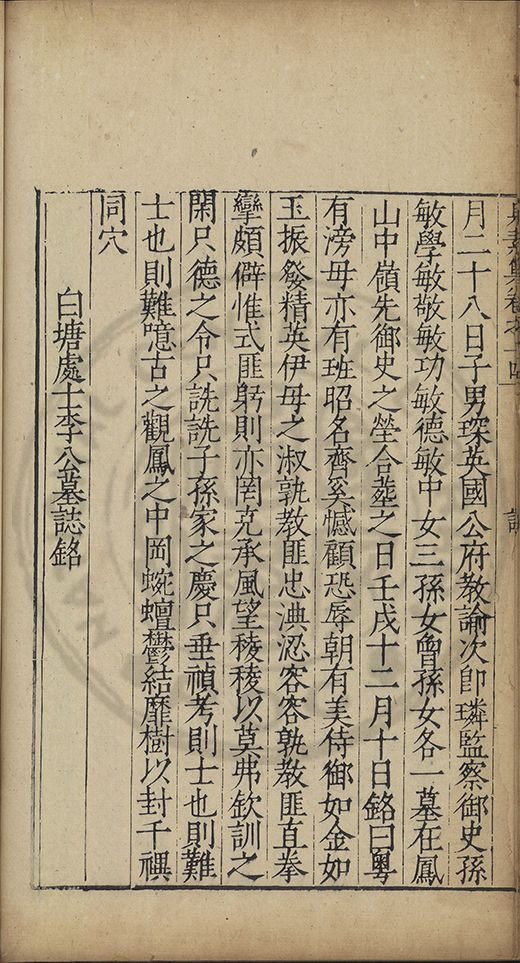 月二十八日子男琛英國公府教諭次即璘監察御史孫
敏學敏敬敏功敏德敏中女三孫女曾孫女各一墓在鳳
山中嶺先御史之塋合塟之日壬戌十二月十日銘曰粵
有滂母亦有班昭名齊奚憾顧恐辱朝有美侍御如金如
玉振發精英伊母之淑孰教匪忠淟涊容容孰教匪直拳
攣頗僻惟式匪躬則亦罔克承風望稜稜以莫弗欽訓之
閑只德之令只詵詵子孫家之慶只垂禎考則士也則難
士也則難噫古之觀鳳之中岡蜿蟺鬱結靡樹以封千禩
同穴
白塘處士李公墓誌銘